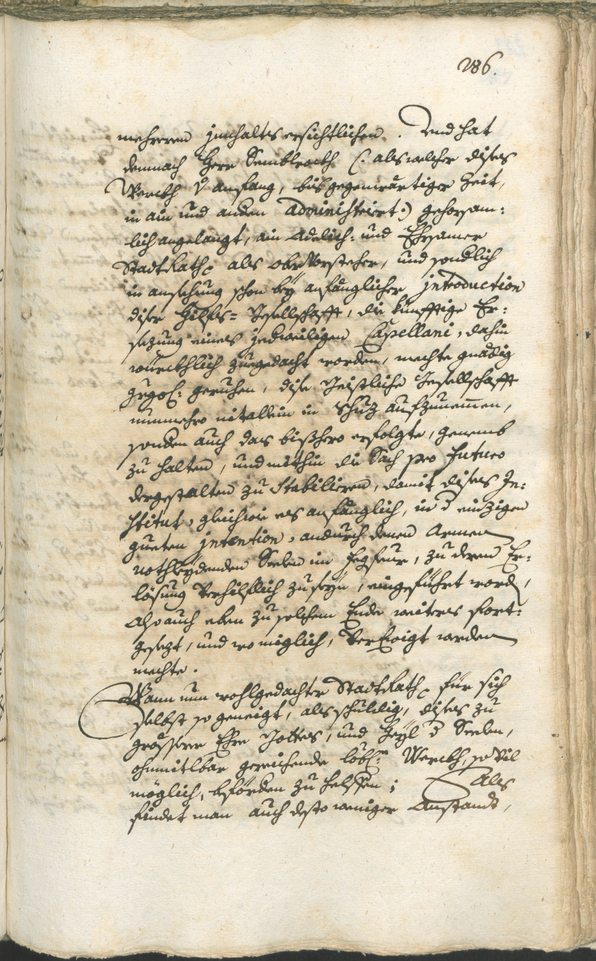 286.
mehrerem innhalts ersichtlichen. Und hat
demnach Herr Semblrock (: als welcher dises
Werckh d anfang, bis gegenwärtiger Zeit,
in ain und andern administrirt:) gehorsam:
lich angelangt, ain Adelich- und Ehrsamer
StadtRath, als obervorsteher, und sondlich
in ansehung schon bey anfänglicher introduction
diser Hilfs- Gesellschafft, die künfftige Er:
sezung eines jedweiligen Capellani, dahin
würckhlich zuegedacht worden, mechte gnädig
geruhen, dise Geistliche Gesellschafft
nunmehro nit allein in schuz aufzunemmen,
sonden auch das bishero erfolgte, genemb
zu halten, und mithin die Sach pro futuro
dergestalten zu stabilieren, damit dises In:
stitut, gleichwie es anfänglich, in d einzigen
gueten intention, andurch denen Armen
nothleydenden Seelen im Fegfeur, zu deren Er:
lösung verhilflich zu seyn, eingeführt word,
Also auch eben zu solchem Ende weiters fort:
gesezt, und wo miglich, verEwigt werden
mechte.
Wann nun wohlgedachter StadtRath für sich
selbst so geneigt, als schuldig, dises zu
grössere Ehre Gottes, und Heyl d Seelen,
ohnmitlbar gereichende löbl: Werckh, so vil
möglich, befördern zu helffen; Als
findet man auch desto weniger Anstandt,